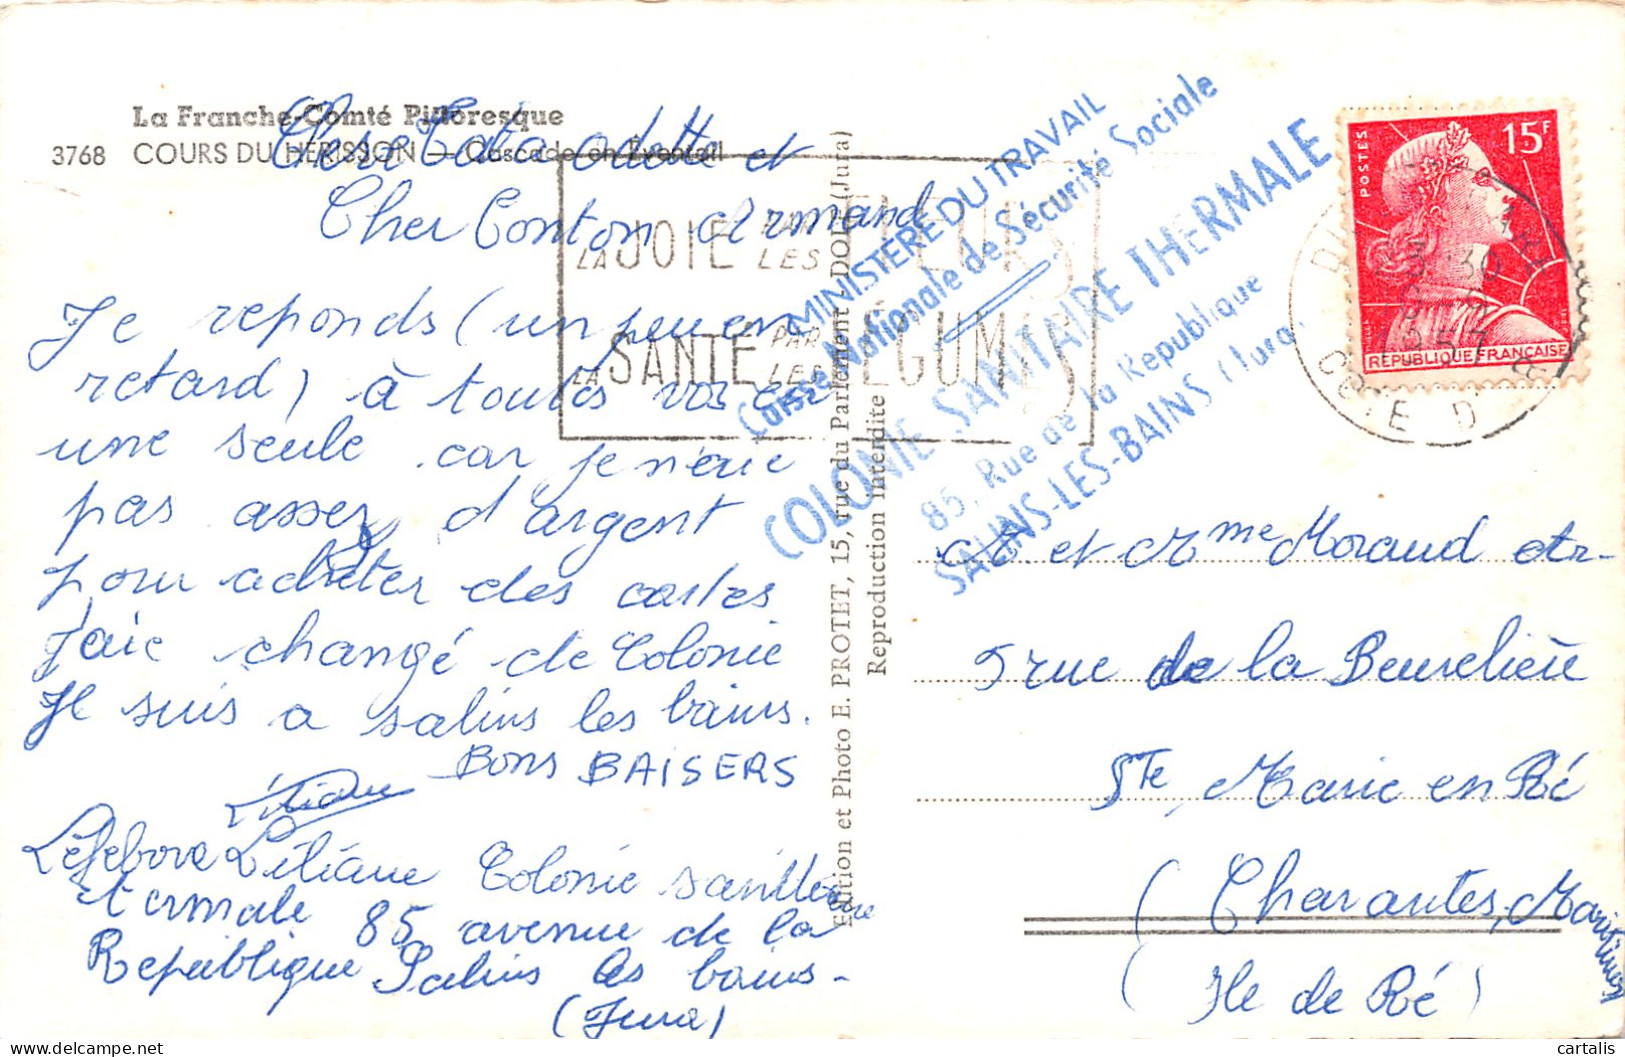 La Franche-Comté Pittoresque
3768 COURS DU HÉRISSON — Cascade en Éventail
Chère Tata odette et
Cher Tonton Armand
Je reponds (un peu en
retard) à toutes vos
une seule car je n'aie
pas assez d'argent
pour acheter des cartes
J'aie changé de Colonie
Je suis a salins les bains.
Bons BAISERS
Liliane
Lefebvre Liliane Colonie sanitaire
termale 85 avenue de la
Republique Salins les bains -
(Jura)
Edition et Photo E. PROTET, 15, rue du Parlement - DOLE (Jura)
Reproduction interdite
LA JOIE PAR LES FLEURS
LA SANTÉ PAR LES LÉGUMES
MINISTÈRE DU TRAVAIL
Caisse Nationale de Sécurité Sociale
COLONIE SANITAIRE THERMALE
85, Rue de la République
SALINS-LES-BAINS (Jura)
POSTES
15F
RÉPUBLIQUE FRANÇAISE
CÔTE D
et Mme Moraud Ar-
5 rue de la Beurelière
Ste Marie en Ré
(Charantes, Maritimes
Ile de Ré)
cartalis